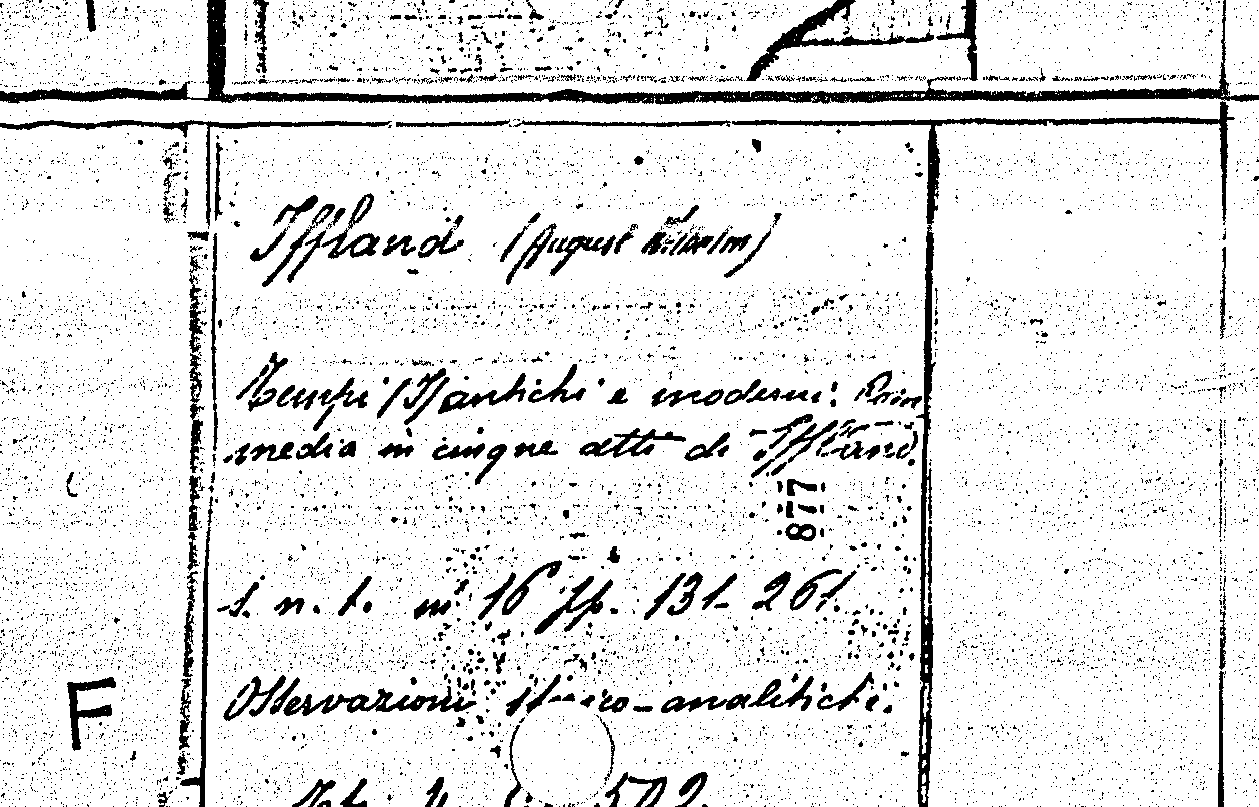 Iffland (August Wilhelm)
Tempi (I) antichi e moderni:
media in cinque atti di Iffland.
877
s. n. t. in 16 pp. 131-261.
Osservazioni storico-analitiche.
F